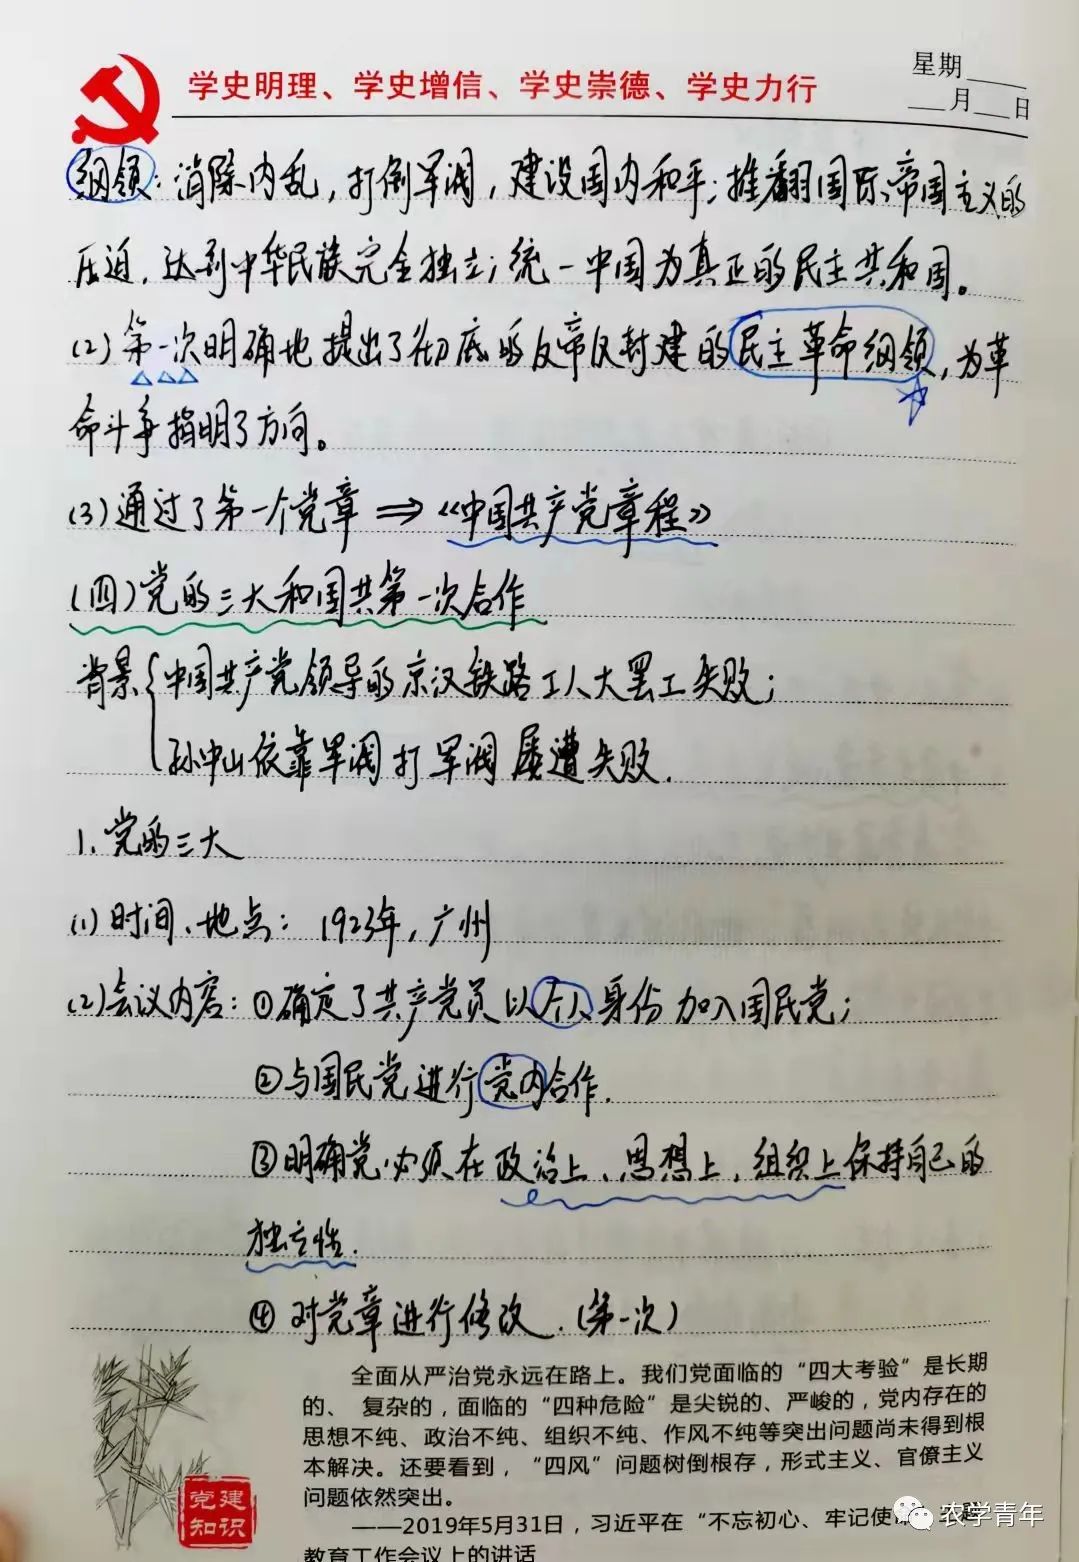 学史明理、学史增信、学史崇德、学史力行
星期
月 日
纲领：消除内乱，打倒军阀，建设国内和平；推翻国际帝国主义的
压迫，达到中华民族完全独立；统一中国为真正的民主共和国。
(2)第一次明确地提出了彻底的反帝反封建的民主革命纲领，为革
命斗争指明了方向。
(3)通过了第一个党章 ⇒《中国共产党章程》
(四)党的三大和国共第一次合作
背景{中国共产党领导的京汉铁路工人大罢工失败；
孙中山依靠军阀打军阀屡遭失败.
1.党的三大
(1)时间、地点：1923年，广州
(2)会议内容：①确定了共产党员以个人身份加入国民党；
②与国民党进行党内合作.
③明确党必须在政治上、思想上、组织上保持自己的
独立性.
④对党章进行修改.(第一次)
全面从严治党永远在路上。我们党面临的“四大考验”是长期
的、复杂的，面临的“四种危险”是尖锐的、严峻的，党内存在的
思想不纯、政治不纯、组织不纯、作风不纯等突出问题尚未得到根
本解决。还要看到，“四风”问题树倒根存，形式主义、官僚主义
问题依然突出。
——2019年5月31日，习近平在“不忘初心、牢记使
教育工作会议上的讲话
党建
知识
农学青年